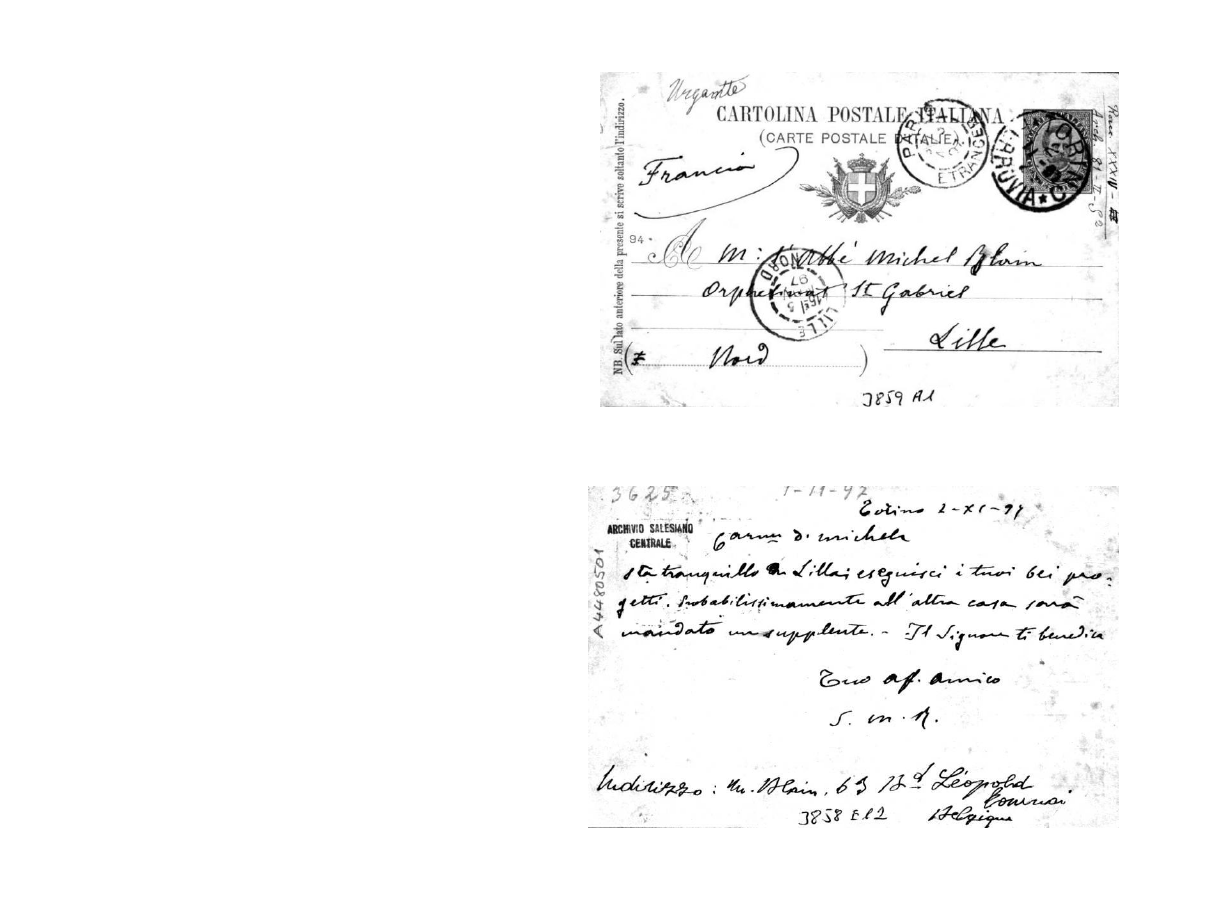 Urgente
CARTOLINA POSTALE ITALIANA
(CARTE POSTALE D'ITALIE)
Francia
PARIS ETRANGER
TORINO FERROVIA
NB. Sul lato anteriore della presente si scrive soltanto l'indirizzo.
94
A M: l'Abbé Michel Blain
Orphelinat St Gabriel
Lille
( Nord )
LILLE NORD 97
3859 A1
3625
1-11-97
Torino 2-XI-97
ARCHIVIO SALESIANO
CENTRALE
A4480501
D. Michele
sta tranquillo a Lilla; eseguisci i tuoi bei pro-
getti. Probabilissimamente all'altra casa sarà
mandato un supplente. - Il Signore ti benedica
Tuo af. amico
S. M. R.
Indirizzo: M. Blain, 63 Bd Léopold
Tournai
3858 E12 Belgique